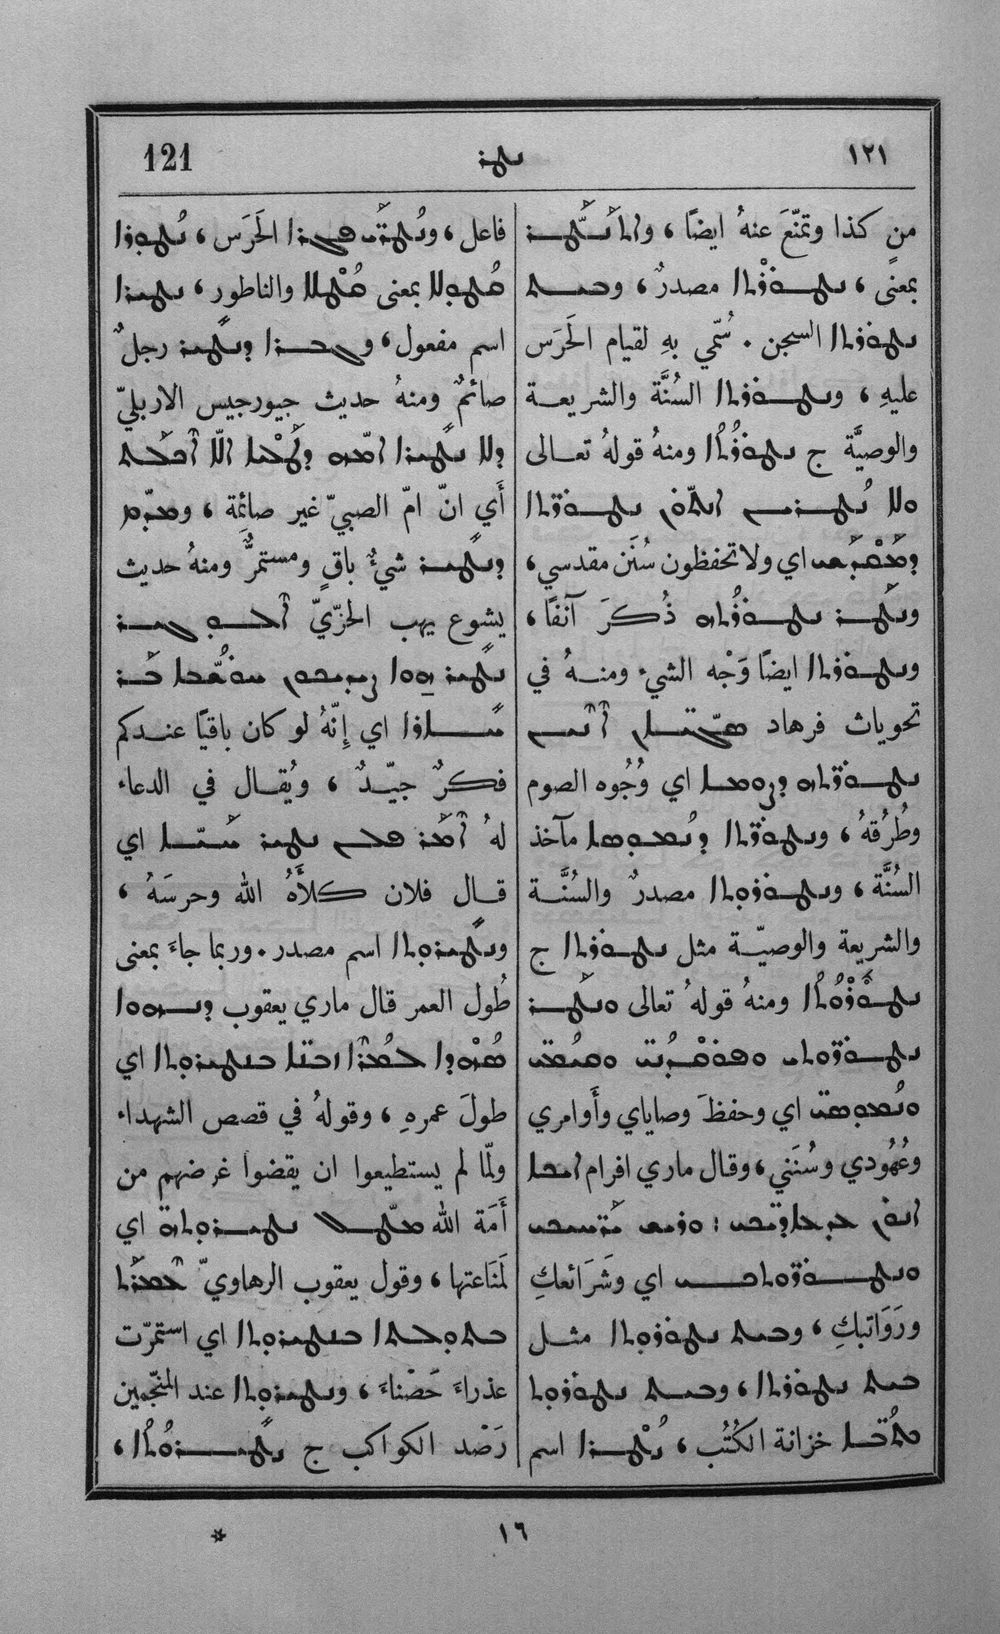 ١٢١
ܢܛܪ
121
من كذا وتمنّعَ عنهُ ايضًا ، ܘܐܬܢܛܪ
بمعنًى ، ܢܛܘܪܬܐ مصدرٌ ، ܘܒܝܬ
ܢܛܘܪܬܐ السجن . سُمّي بهِ لقيام الحَرَس
عليهِ ، ܘܢܛܘܪܬܐ السُنَّة والشريعة
والوصيَّة ج ܢܛܘܪܬܐ ومنهُ قولهُ تعالى
ܘܠܐ ܢܛܪܝܢ ܐܢܬܘܢ ܢܛܘܪ̈ܬܐ
ܕܡܩܕܫܝ اي ولا تحفظون سُنَن مقدسي ،
ܘܢܛܪ ܢܛܘܪܬܗ ذُكرَ آنفًا ،
ܘܢܛܘܪܬܐ ايضًا وَجْه الشيء ومنهُ في
تحويات فرهاد ܣܓܝܐܝܢ ܐܢܝܢ
ܢܛܘܪ̈ܬܗ ܕܨܘܡܐ اي وُجُوه الصوم
وطُرُقهُ ، ܘܢܛܘܪ̈ܬܐ ܕܢܡܘܣܐ مآخذ
السُنَّة ، ܘܢܛܘܪܘܬܐ مصدرٌ والسُنَّة
والشريعة والوصيّة مثل ܢܛܘܪܬܐ ج
ܢܛܘܪ̈ܬܐ ومنهُ قولهُ تعالى ܘܢܛܪ
ܢܛܘܪ̈ܬܝ ܘܦܘܩܕܢܝ ܘܩܝܡܝ
ܘܢܡܘܣܝ اي وحفظَ وصاياي وأَوامري
وعُهُودي وسُنَني ، وقال ماري افرام ܐܝܟܐ
ܐܢܘܢ
ܘܢܛܘܪ̈ܬܟܝ اي وشَرَائعكِ
ورَوَاتبكِ ، ܘܒܝܬ ܢܛܘܪܘܬܐ مثل
ܒܝܬ ܢܛܘܪܬܐ ، ܘܒܝܬ ܢܛܘܪܘܬ
ܟܬܒܐ خزانة الكُتُب ، ܢܛܪܐ اسم
فاعل ، ܘܢܛܪ̈ܝ ܦܓܪܐ الحَرَس ، ܢܛܘܪܐ
ܩܛܘܠܐ بمعنى ܩܛܠܐ والناطور ، ܢܛܝܪܐ
اسم مفعول ، ܘܓܒܪܐ ܕܢܛܝܪ رجلٌ
صائمٌ ومنهُ حديث جيورجيس الاربليّ
ܕܠܐ ܢܛܝܪܐ ܐܡܗ ܕܛܠܝܐ
أَي انّ امّ الصبيّ غير صائِمَة ، ܘܡܕܡ
ܕܢܛܝܪ شيءٌ باقٍ ومستمرٌّ ومنهُ حديث
يشوع يهب الحزّيّ
ܢܛܝܪ ܗܘܐ
اي إِنّهُ لو كان باقيًا عندكم
فكرٌ جيّدٌ ، ويُقال في الدعاء
لهُ ܐܡܪ ܦܠܢ ܢܛܝܪ ܚܝܐ اي
قال فلان كلأَهُ الله وحرسَهُ ،
ܘܢܛܝܪܘܬܐ اسم مصدر . وربما جاءَ بمعنى
طُول العمر قال ماري يعقوب ܕܢܗܘܐ
ܒܢܛܝܪܘܬܐ اي
طولَ عمرهِ ، وقولهُ في قصص الشهداء
ولّما لم يستطيعوا ان يقضوا غرضهم من
أَمَة الله ܡܛܠ ܢܛܝܪܘܬܗ اي
لمَنَاعتها ، وقول يعقوب الرهاويّ
ܒܬܘܠܬܐ ܒܢܛܝܪܘܬܐ اي استمرّت
عذراءَ حَصْناءَ ، ܘܢܛܝܪܘܬܐ عند المنجّمين
رَصْد الكواكب ج ܢܛܝܪ̈ܘܬܐ ،
١٦
*